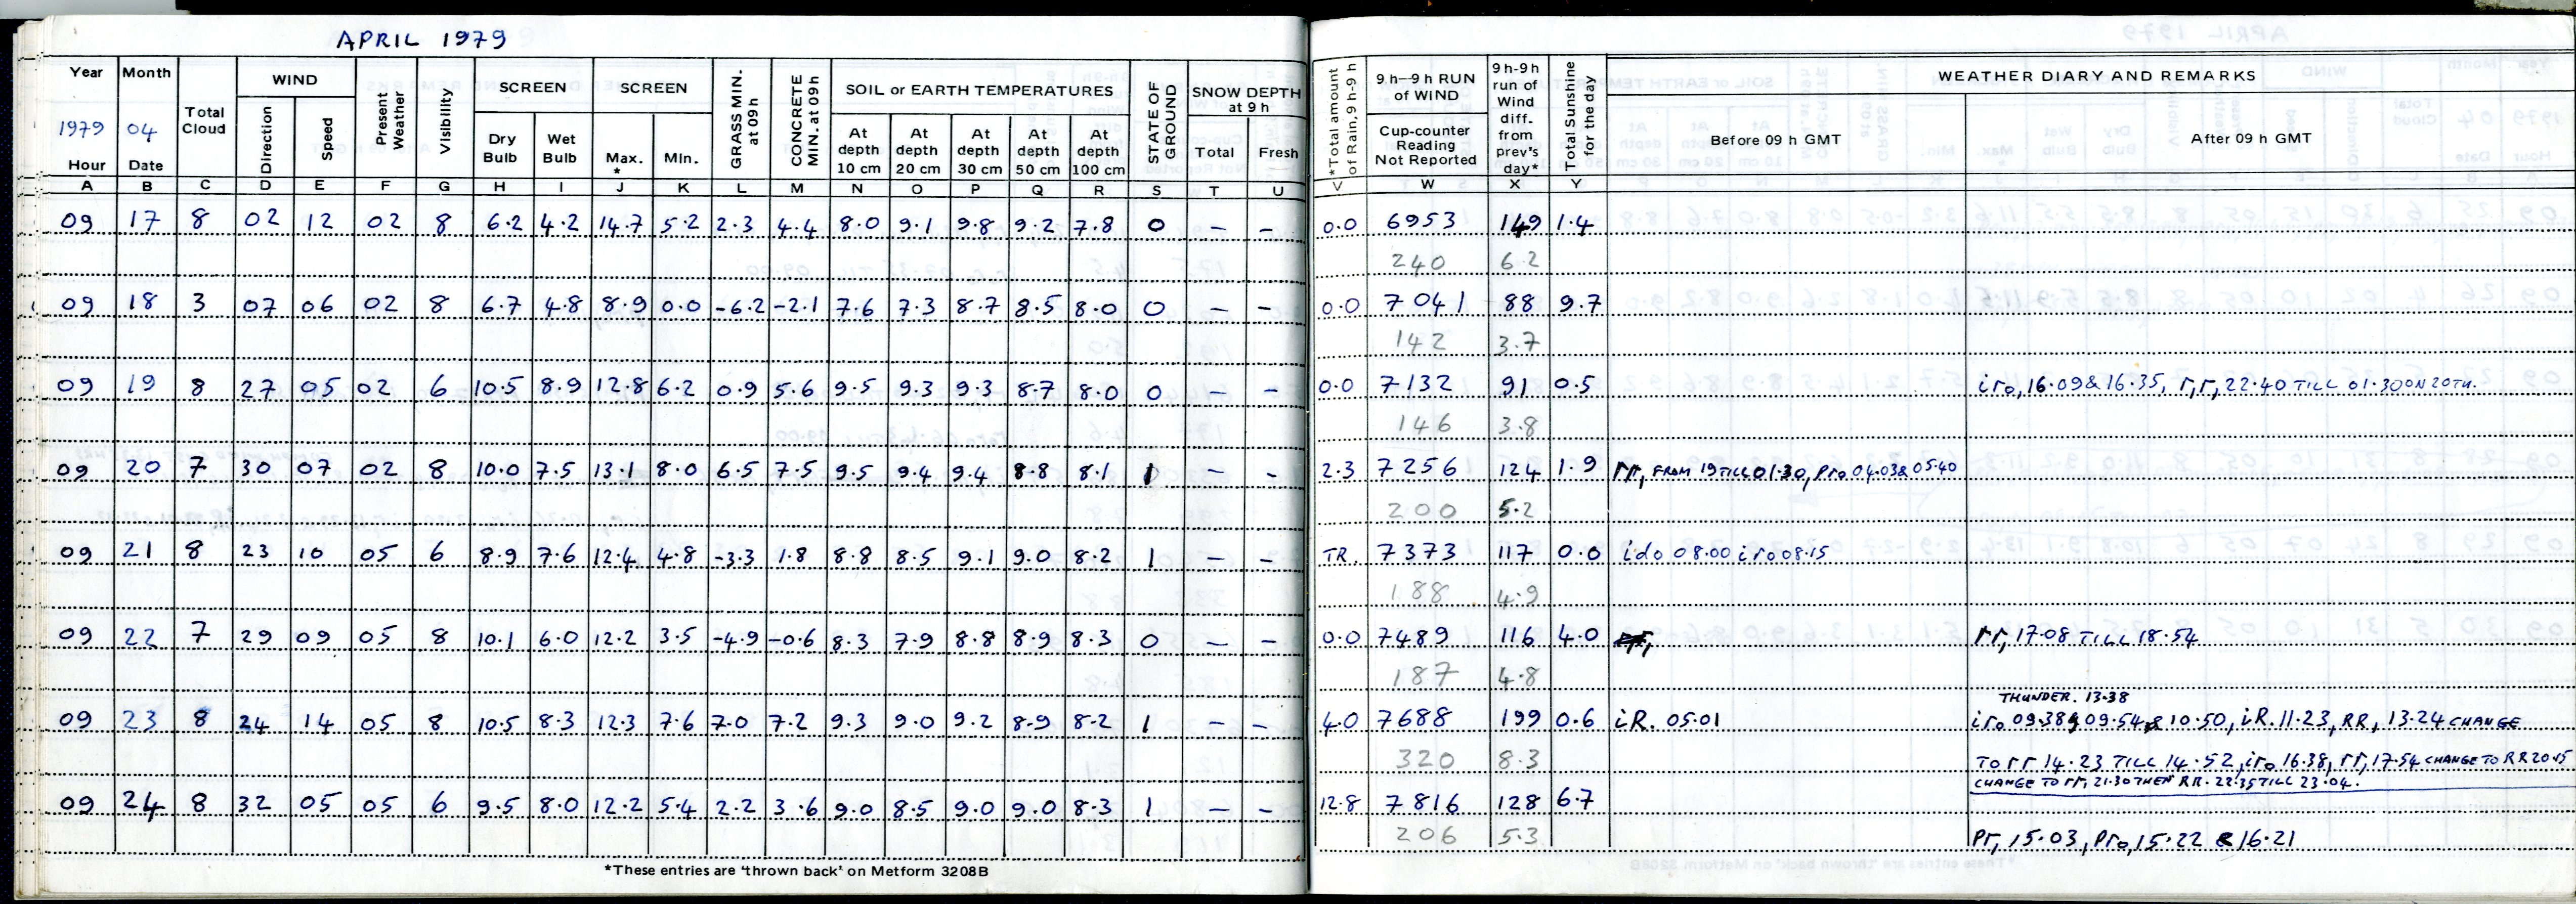 APRIL 1979
Year Month Total Cloud WIND Present Weather Visibility SCREEN SCREEN GRASS MIN. at 09h CONCRETE MIN. at 09h SOIL or EARTH TEMPERATURES STATE OF GROUND SNOW DEPTH at 9 h *Total amount of Rain, 9h-9h 9 h–9 h RUN of WIND 9h-9h run of Wind diff. from prev's day* Total Sunshine for the day WEATHER DIARY AND REMARKS
1979 04 Direction Speed Dry Bulb Wet Bulb Max. * Min. At depth 10 cm At depth 20 cm At depth 30 cm At depth 50 cm At depth 100 cm Total Fresh Cup-counter Reading Not Reported Before 09 h GMT After 09 h GMT
Hour Date
A B C D E F G H I J K L M N O P Q R S T U V W X Y
09 17 8 02 12 02 8 6.2 4.2 14.7 5.2 2.3 4.4 8.0 9.1 9.8 9.2 7.8 0 – – 0.0 6953 149 1.4
240 6.2
09 18 3 07 06 02 8 6.7 4.8 8.9 0.0 -6.2 -2.1 7.6 7.3 8.7 8.5 8.0 0 – – 0.0 7041 88 9.7
142 3.7
09 19 8 27 05 02 6 10.5 8.9 12.8 6.2 0.9 5.6 9.5 9.3 9.3 8.7 8.0 0 – – 0.0 7132 91 0.5 iro, 16.09 & 16.35, r,r, 22.40 TILL 01.30 ON 20TH.
146 3.8
09 20 7 30 07 02 8 10.0 7.5 13.1 8.0 6.5 7.5 9.5 9.4 9.4 8.8 8.1 1 – – 2.3 7256 124 1.9 rr, FROM 19 TILL 01.30, pro 04.03 & 05.40
200 5.2
09 21 8 23 10 05 6 8.9 7.6 12.4 4.8 -3.3 1.8 8.8 8.5 9.1 9.0 8.2 1 – – TR. 7373 117 0.0 ido 08.00 iro 08.15
188 4.9
09 22 7 29 09 05 8 10.1 6.0 12.2 3.5 -4.9 -0.6 8.3 7.9 8.8 8.9 8.3 0 – – 0.0 7489 116 4.0 rr, 17.08 TILL 18.54
187 4.8
THUNDER. 13.38
09 23 8 24 14 05 8 10.5 8.3 12.3 7.6 7.0 7.2 9.3 9.0 9.2 8.9 8.2 1 – – 4.0 7688 199 0.6 iR. 05.01 iro 09.38, 09.54 & 10.50, iR. 11.23, RR, 13.24 CHANGE
320 8.3 TO rr 14.23 TILL 14.52, iro 16.38, rr, 17.54 CHANGE TO RR 20.15
CHANGE TO rr, 21.30 THEN RR. 22.35 TILL 23.04.
09 24 8 32 05 05 6 9.5 8.0 12.2 5.4 2.2 3.6 9.0 8.5 9.0 9.0 8.3 1 – – 12.8 7816 128 6.7
206 5.3 Pr, 15.03, Pro, 15.22 & 16.21
*These entries are 'thrown back' on Metform 3208B